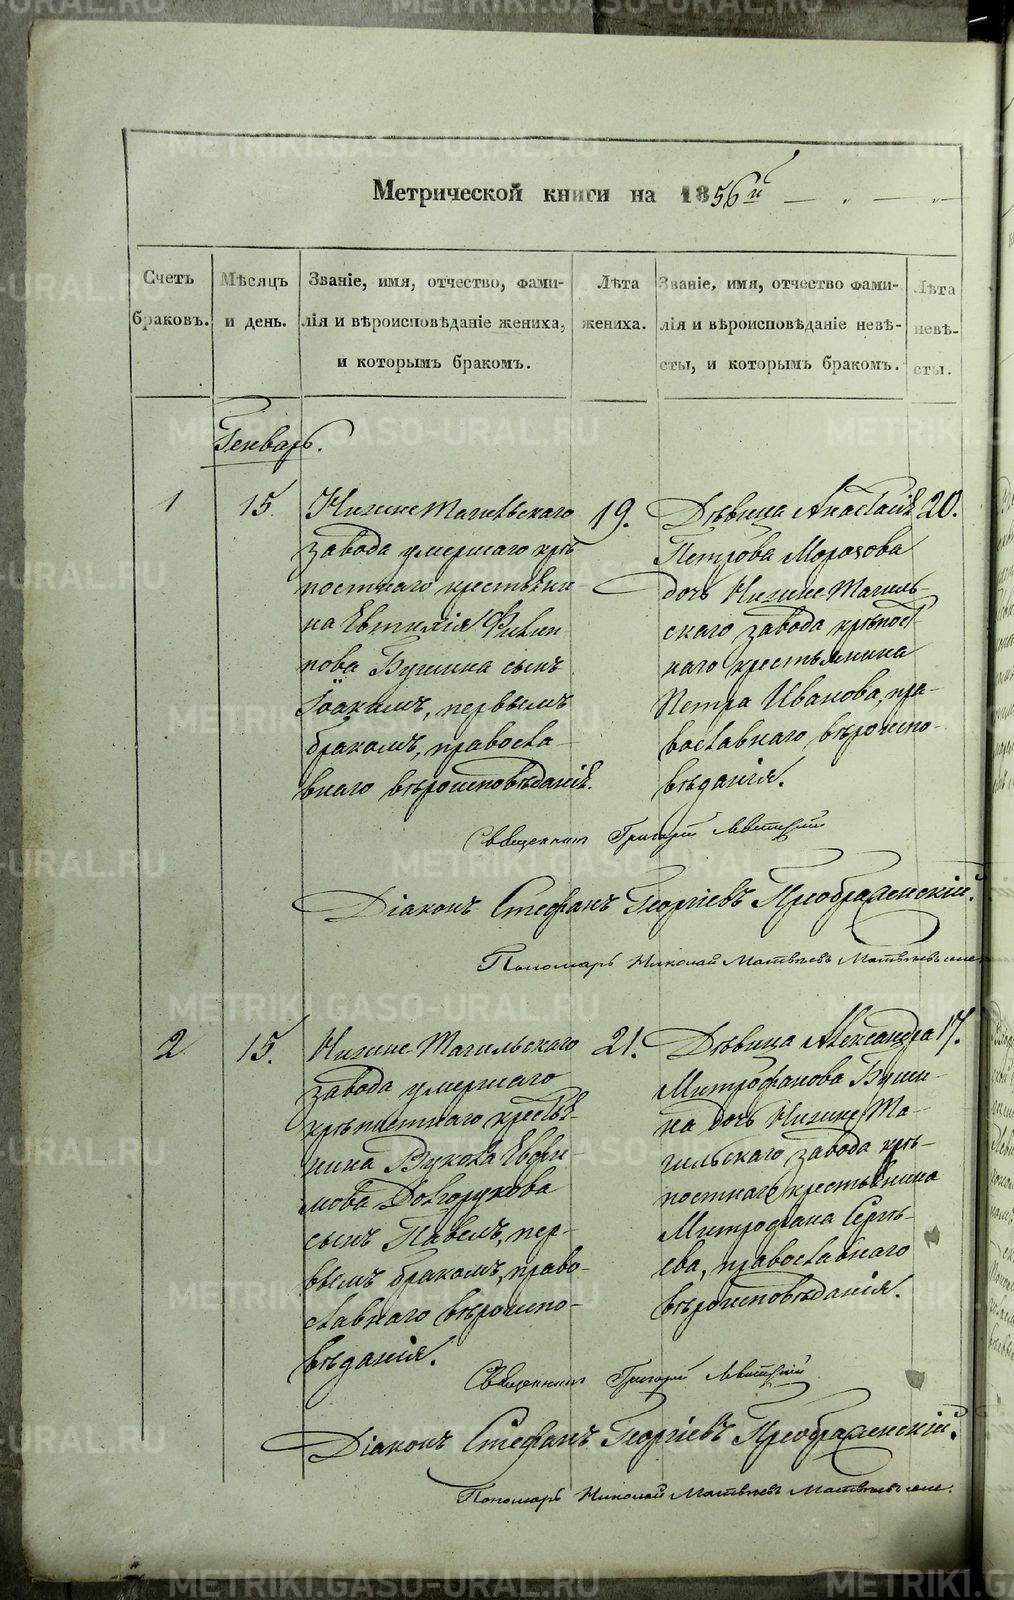 METRIKI.GASO-URAL.RU
Метрической книги на 1856й
Счетъ браковъ.
Мѣсяцъ и день.
Званіе, имя, отчество, фами-
лія и вѣроисповѣданіе жениха,
и которымъ бракомъ.
Лѣта
жениха.
Званіе, имя, отчество фами-
лія и вѣроисповѣданіе невѣ-
сты, и которымъ бракомъ.
Лѣта
невѣ-
сты.
Генварь.
1
15
Нижне Тагильскаго
завода умершаго крѣ
постнаго крестьяни
на Евтихія Филип
пова Бушина сынъ
Іоакимъ, первымъ
бракомъ, правосла-
внаго вѣроисповѣданія.
19.
Дѣвица Анастасія
Петрова Морозова
дочь Нижне Тагиль
скаго завода крѣпост
наго крестьянина
Петра Иванова, пра-
вославнаго вѣроиспо-
вѣданія.
20.
Священникъ Григорій Левитскій
Діаконъ Стефанъ Георгіевъ Преображенскій.
Пономарь Николай Матвѣевъ
2
15.
Нижне Тагильскаго
завода умершаго
крѣпостнаго крестья-
нина Вукола Евфи-
мова Долгорукова
сынъ Павелъ, пер-
вымъ бракомъ, право-
славнаго вѣроиспо-
вѣданія.
21.
Дѣвица Александра
Митрофанова Буши-
на дочь Нижне Та-
гильскаго завода крѣ-
постнаго крестьянина
Митрофана Сергѣ-
ева, православнаго
вѣроисповѣданія.
17.
Священникъ Григорій Левитскій
Діаконъ Стефанъ Георгіевъ Преображенскій.
Пономарь Николай Матвѣевъ